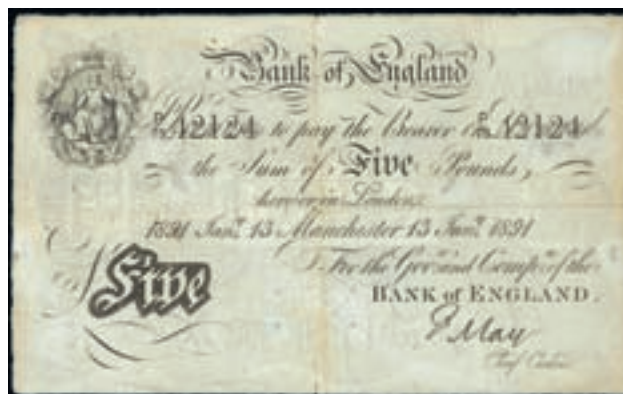 Bank of England
12124 to pay the Bearer 12124
the Sum of Five Pounds,
here or in London
1891 Jany. 13 Manchester 13 Jany. 1891
For the Govr. and Compa. of the
Five
BANK of ENGLAND.
F May
Chief Cashier